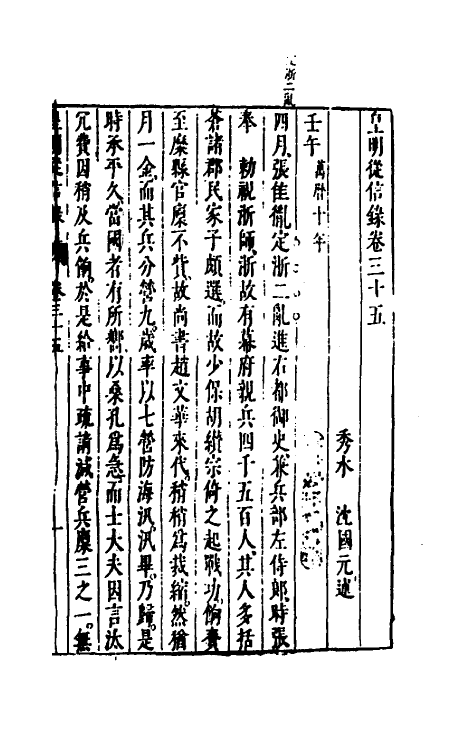 皇明從信錄卷三十五
秀水　沈國元　述
壬午　萬曆十年
四月張佳胤定浙二亂進右都御史兼兵部左侍郎時張
奉　勅視浙師浙故有幕府親兵四千五百人其人多括
蒼諸郡民家子頗選而故少保胡纘宗倚之起戰功餉費
至糜縣官廩不貲故尚書趙文華來代稍稍爲裁縮然猶
月一金而其兵分營九歲率以七營防海汛汛畢乃歸是
時承平久當國者有所嚮以桑孔爲急而士大夫因言汰
冗費因稍及兵餉於是給事中疏請減營兵糜三之一無
浙二亂